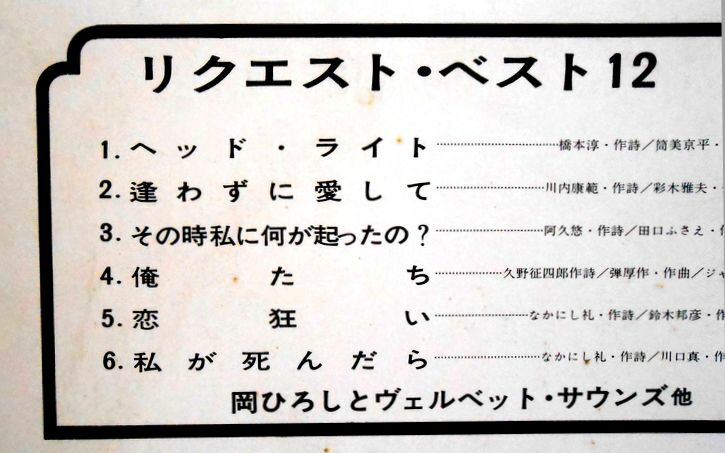 リクエスト・ベスト12
1. ヘッド・ライト……………橋本淳・作詩／筒美京平・
2. 逢わずに愛して……………川内康範・作詩／彩木雅夫・
3. その時私に何が起ったの？……………阿久悠・作詩／田口ふさえ・作
4. 俺たち……………久野征四郎作詩／弾厚作・作曲／ジャ
5. 恋狂い……………なかにし礼・作詩／鈴木邦彦・作
6. 私が死んだら……………なかにし礼・作詩／川口真・作
岡ひろしとヴェルベット・サウンズ他